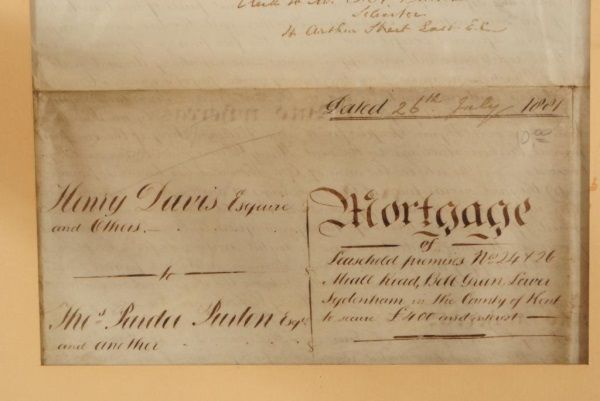 Solicitor
Arthur Street East E.C.
Dated 26th July 1881
10.00
Henry Davis Esquire
and Others.
to
Thos. Purdin Esqre.
and another
Mortgage
of
Leasehold premises Nos 24 & 26
Road, Bell Green Lower
Sydenham in the County of Kent
to secure £400 and interest